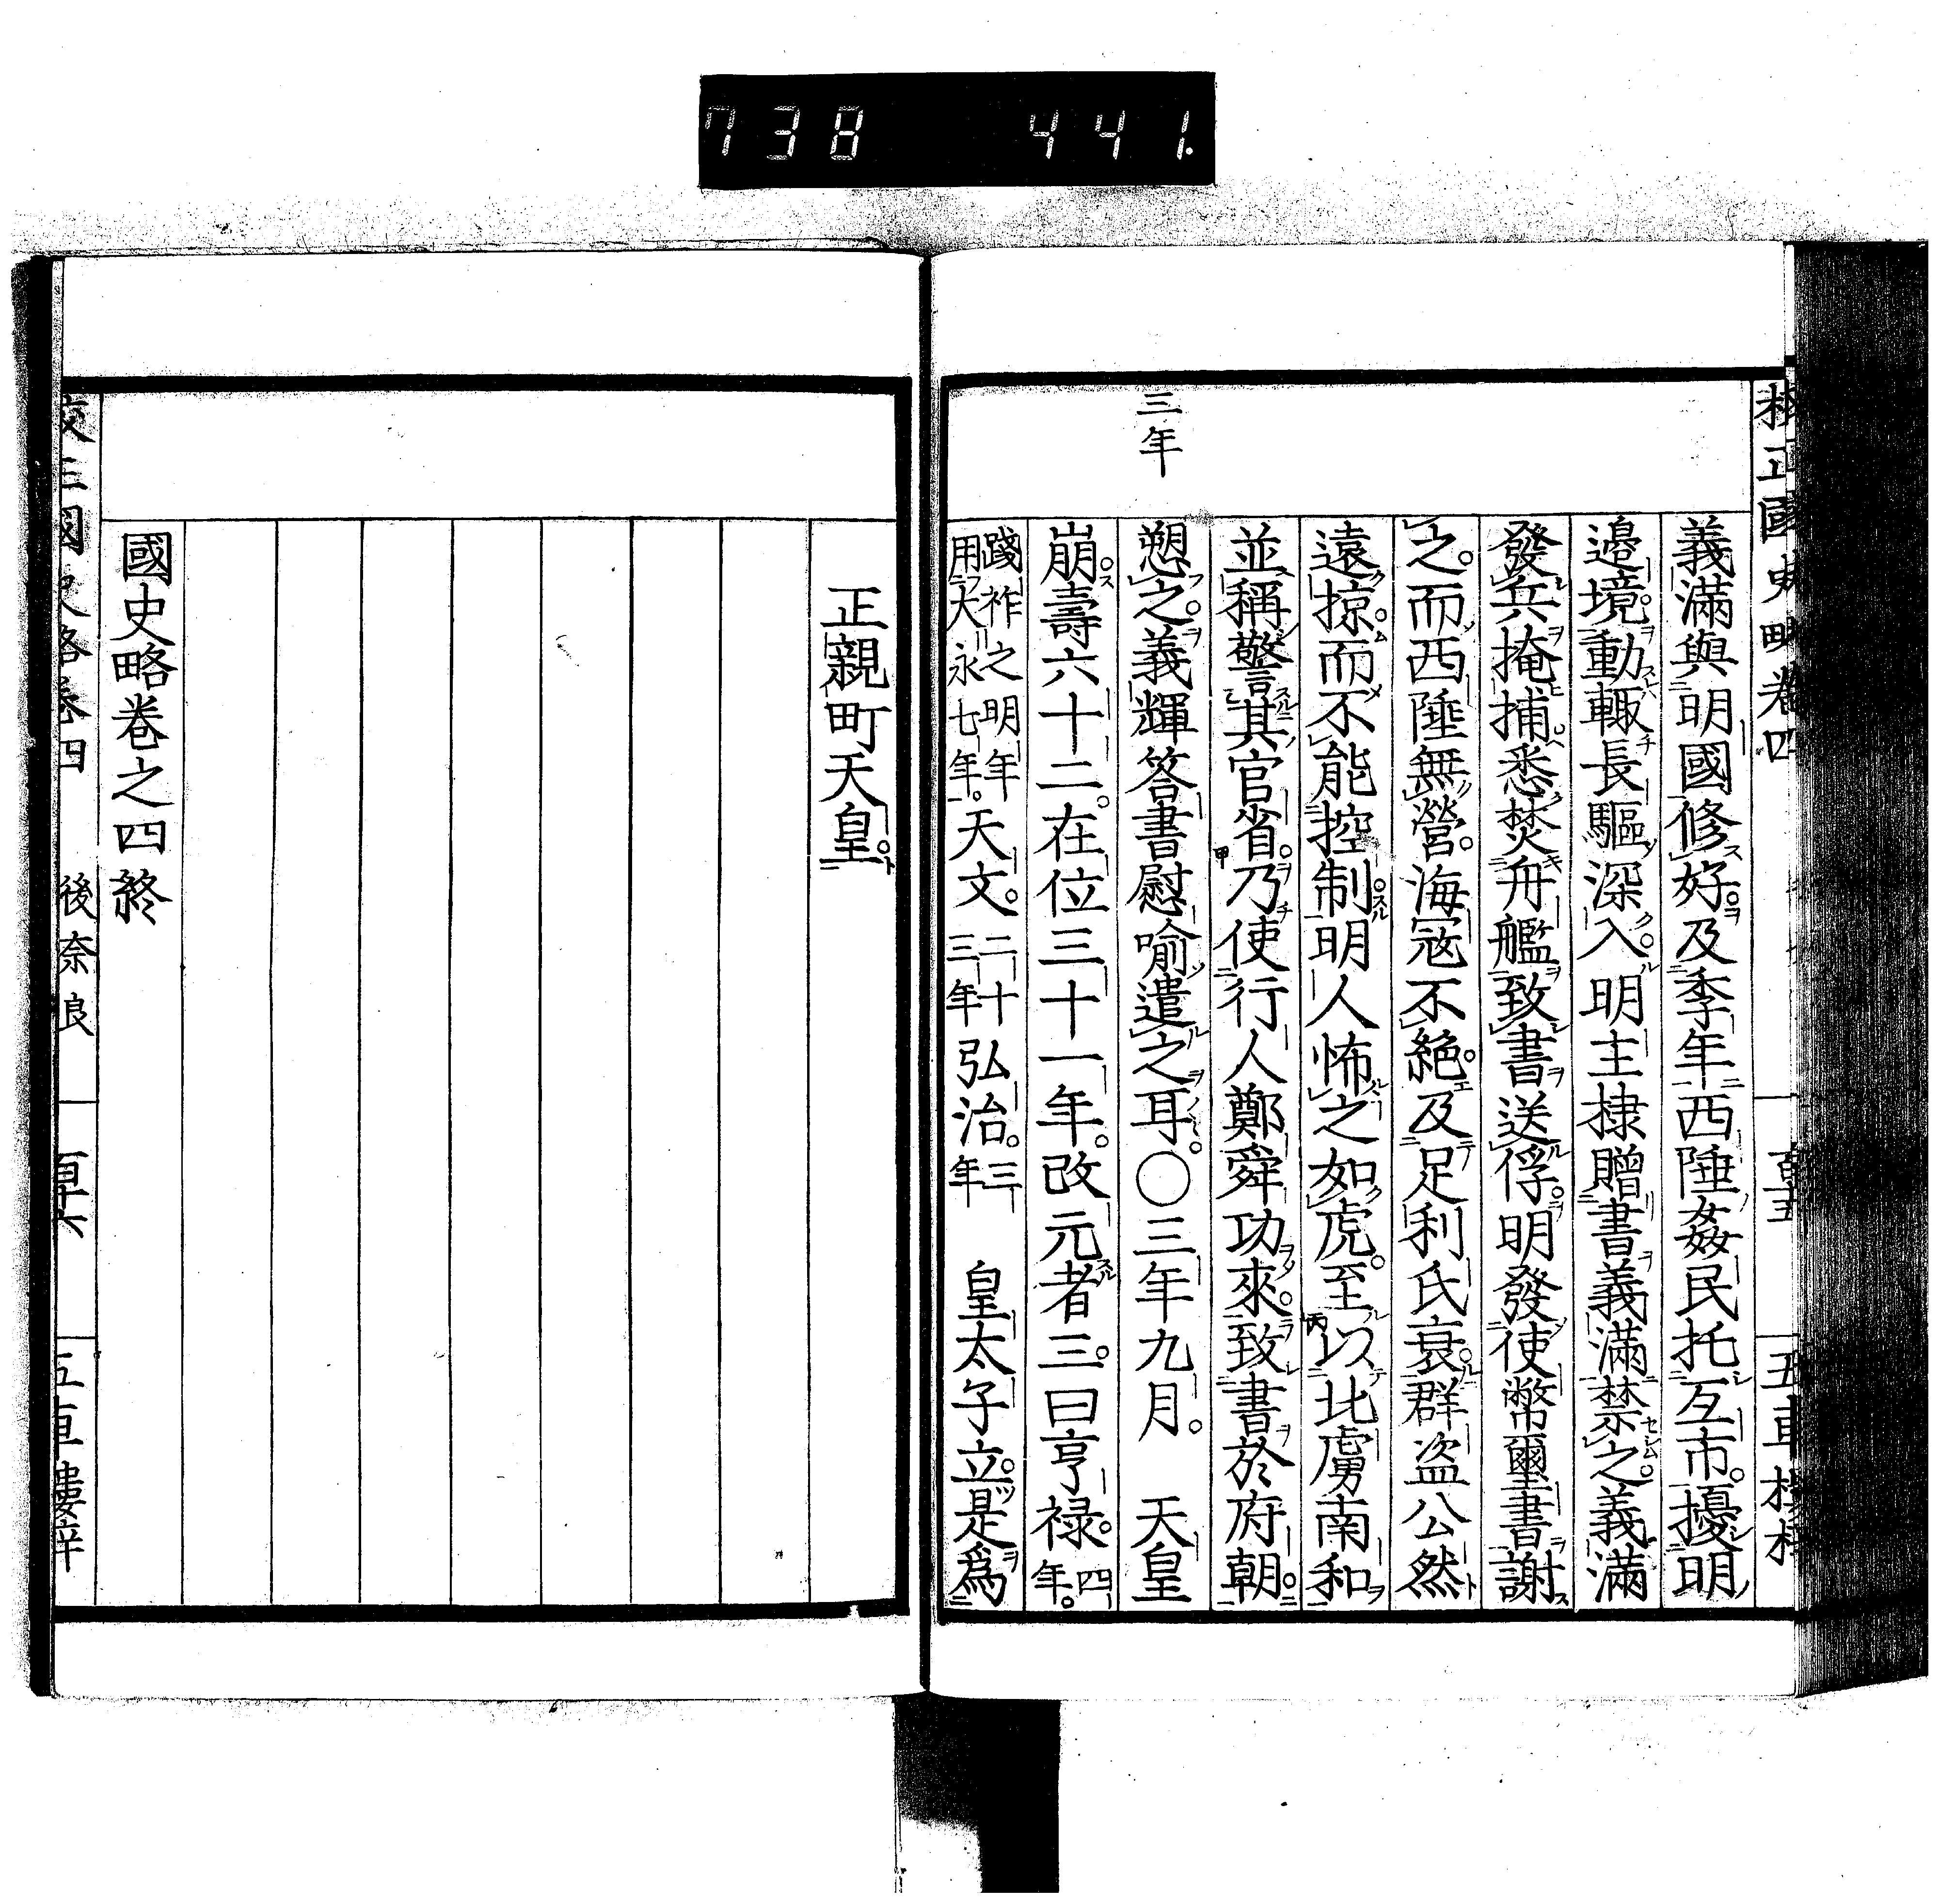 738 441.
校正國史略卷四 百十五 五車樓梓
義滿與明國修好。及季年西陲姦民托互市。擾明
邊境。動輙長驅深入。明主棣贈書義滿禁之。義滿
發兵掩捕。悉焚舟艦。致書送俘。明發使幣璽書謝
之。而西陲無營。海寇不絶。及足利氏衰。群盜公然
遠掠。而不能控制。明人怖之如虎。至以北虜南和
並稱警其官省。乃使行人鄭舜功來。致書於府朝。
三年
愬之。義輝答書慰喻遣之耳。〇三年九月。 天皇
崩。壽六十二。在位三十一年。改元者三。曰亨禄。四年。
踐祚之明年用大永七年。天文。二十三年弘治。三年 皇太子立。是爲
正親町天皇。
國史略卷之四終
校正國史略卷四 後奈良 百十六 五車樓梓